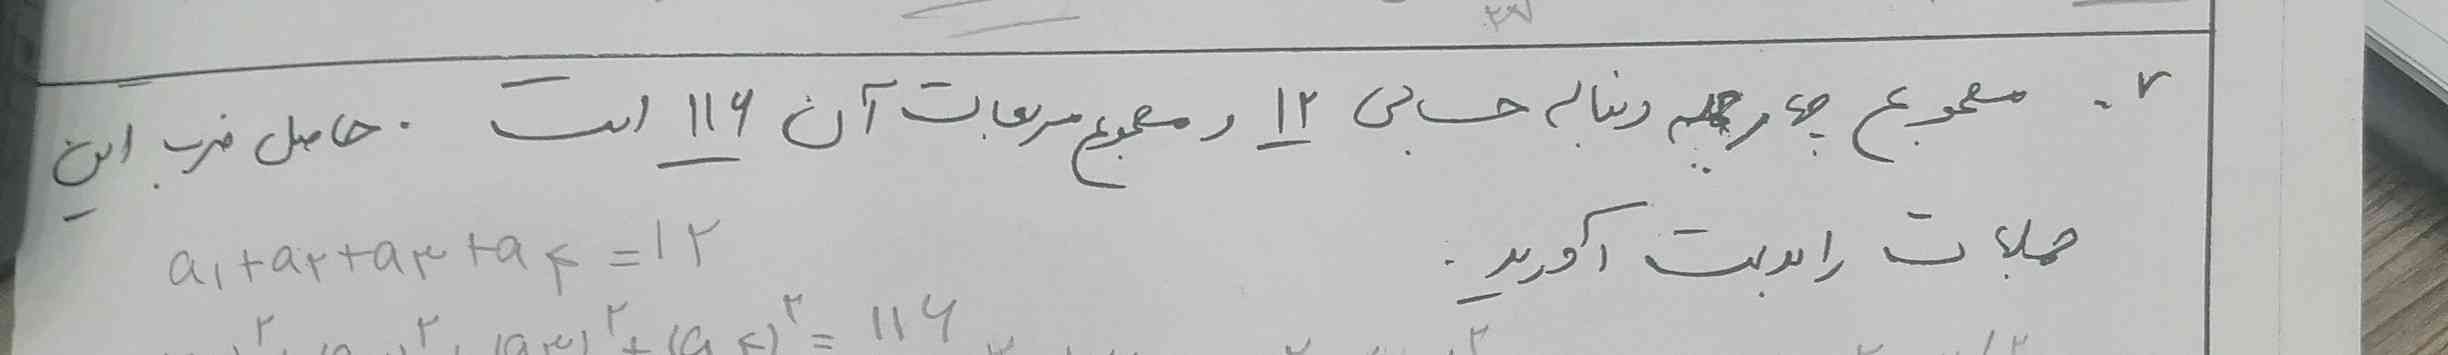 ۲۷
۷. مجموع چهار جمله دنباله حسابی ۱۲ و مجموع مربعات آن ۱۱۶ است. حاصل ضرب این
جملات را بدست آورید.
a₁+a₂+a₃+a₄=۱۲
(a₃)² + (a₄)² = ۱۱۶